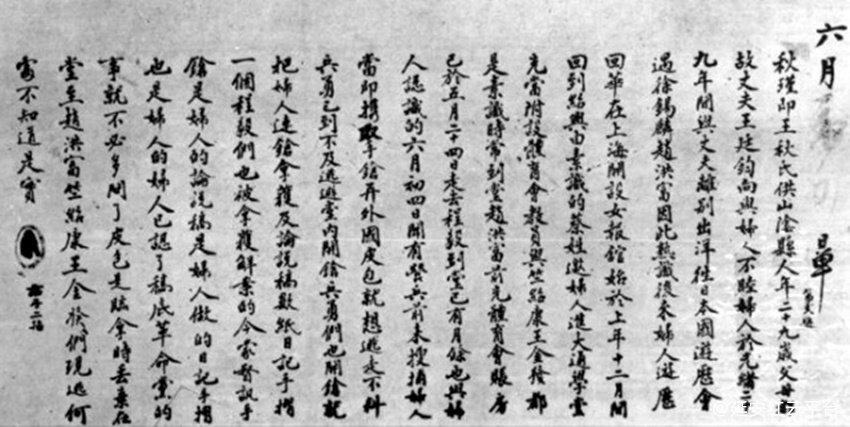 六月
單
秋瑾即王秋氏供山陰縣人年二十九歲父母
故丈夫王廷鈞向與婦人不睦婦人於光緒二
九年間與丈夫離別出洋往日本國遊歷會
遇徐錫麟趙洪富因此熟識後來婦人遊歷
回華在上海開設女報館始於上年十二月間
回到紹興由素識的蔡姓邀婦人進大通學堂
充當附設體育會教員與竺紹康王金發都
是素識時常到堂趙洪富前充體育會賬房
已於五月二十四日走去程毅到堂已有月餘也與婦
人認識的六月初四日聞有營兵前來搜捕婦人
當即携取手鎗并外國皮包就想逃走不料
兵勇已到不及逃避堂內開鎗兵勇們也開鎗就
把婦人連鎗拿獲及論說稿數紙日記手摺
一個程毅們也被拿獲解案的今蒙督訊手
鎗是婦人的論說稿是婦人做的日記手摺
也是婦人的婦人已認了稿底革命黨的
事就不必多問了皮包是臨拿時丟棄在
堂至趙洪富竺紹康王金發們現逃何
處不知道是實